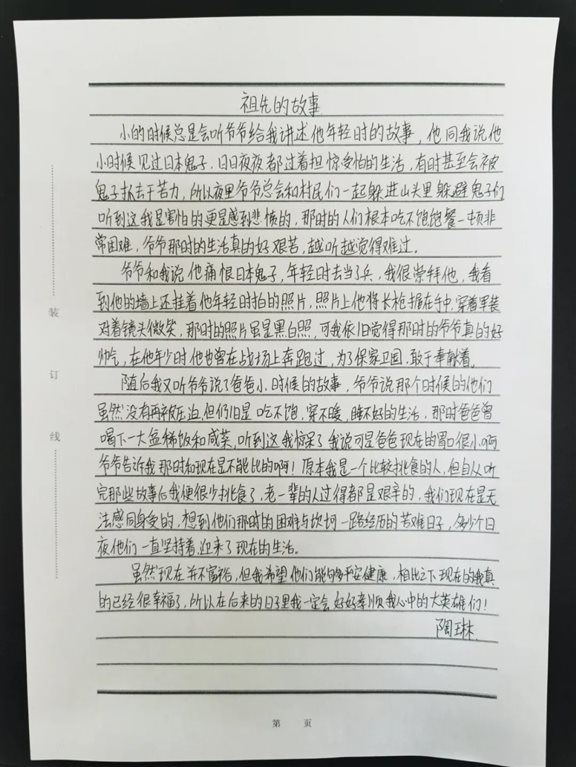 祖先的故事
小的时候总是会听爷爷给我讲述他年轻时的故事，他同我说他
小时候见过日本鬼子，日日夜夜都过着担惊受怕的生活，有时甚至会被
鬼子抓去干苦力，所以夜里爷爷总会和村民们一起躲进山头里躲避鬼子们
听到这我是害怕的更是感到悲愤的，那时的人们根本吃不饱饱餐一顿非
常困难，爷爷那时的生活真的好艰苦，越听越觉得难过。
爷爷和我说他痛恨日本鬼子，年轻时去当了兵，我很崇拜他，我看
到他的墙上还挂着他年轻时拍的照片，照片上他将长枪握在手中，穿着军装
对着镜头微笑，那时的照片虽是黑白照，可我依旧觉得那时的爷爷真的好
帅气，在他年少时他也曾在战场上奔跑过，为了保家卫国，敢于奉献着。
随后我又听爷爷说了爸爸小时候的故事，爷爷说那个时候的他们
虽然没有再被压迫，但仍旧是吃不饱，穿不暖，睡不好的生活，那时爸爸曾
喝下一大盆稀饭和咸菜，听到这我惊呆了我说可是爸爸现在的胃口很小啊
爷爷告诉我那时和现在是不能比的啊！原本我是一个比较挑食的人，但自从听
完那些故事后我便很少挑食了，老一辈的人过得都是艰辛的，我们现在是无
法感同身受的，想到他们那时的困难与坎坷一路经历的苦难日子，多少个日
夜他们一直坚持着，迎来了现在的生活。
虽然现在并不富裕，但我希望他们能够平安健康，相比之下现在的我真
的已经很幸福了，所以在后来的日子里我一定会好好孝顺我心中的大英雄们！
陶琳
装
订
线
第 页